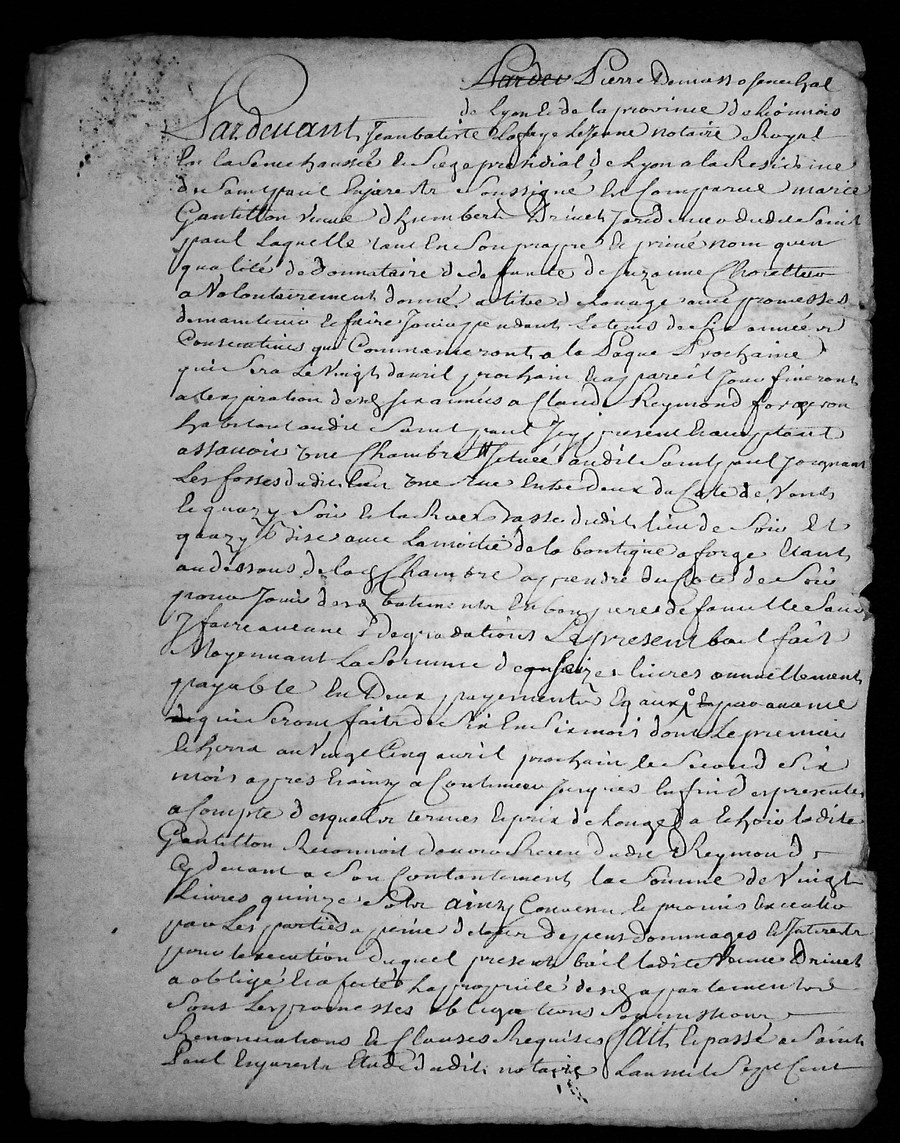 Pardev Pierre Demasso senechal
de Lyon & de la province de Lionnois
Pardevant Jean batiste Lafaye Lejeune notaire Royal
En la Senechaussée & Siege presidial de Lyon a la Residence
du Saint paul Enjarestz Soussigné Est Comparue marie
Gantillon veuve d'humbert Drivet Jardinier dudit Saint
paul Laquelle tant En Son propre & privé nom qu'en
qualité de donnataire de defunte de Suzanne
a Volontairement donné a titre de Louage avec promesses
de maintenir & faire Jouir pendant Le tems de Six années
Consecutives qui Commanceront a la Paque Prochaine
qui Sera Le vingt d'avril prochain & a pareil Jour finiront
a lexpiration desd Six années a Claude Reymond forgeron
habitant audit Saint paul Icy present & acceptant
assavoir une Chambre Scituée audit Saint paul Joignant
Les fosses dudit Lieu une rue Entre deux du Coté de Vent
& quazy Soir & la dudit Lieu de Soir &
quazy bise avec La moitié de la boutique a forge Etant
au dessous de lad Chambre a prendre du Coté de Soir
pour Jouir desd batiments En bon pere de famille Sans
y faire aucune degradations Le present bail fait
Moyennant La Somme de Seize Livres annuellement
payable En Deux payements Egaux & par avance
qui Seront faits de Six En Six mois dont Le premier
Echerra au Vingt Cinq avril prochain Le Second Six
mois apres & ainsy a Continuer Jusques En fin des presentes
a Compte desquels termes & prix de Louage a Echoir ladite
Gantillon Reconnoit d'avoir Receu dudit Reymond
Cy devant a Son Contantement la Somme de Vingt
Livres quinze Sols ainsy Convenu & promis Executer
par Les parties a peine de tous Depens dommages & Interests
pour lexecution duquel present bail ladite Veuve Drivet
a obligé & affecté La proprieté desd appartements
Sous Les promesses obligations Soumissions
Renonciations & Clauses Requises fait & passé a Saint
Paul Enjarestz Etude dudit notaire Lan mil Sept Cent